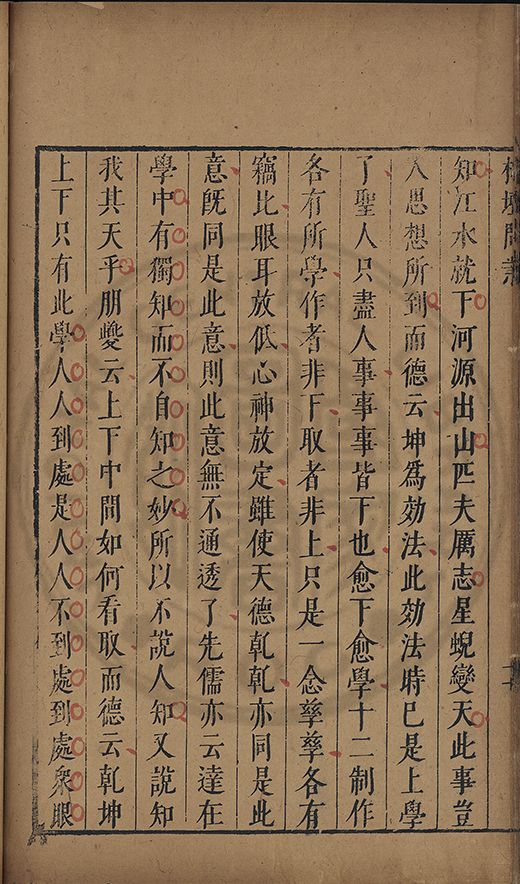 榕壇問業
知江水就下河源出山匹夫厲志星蜺變天此事豈
人思想所到而德云坤為効法此効法時已是上學
了聖人只盡人事事事皆下也愈下愈學十二制作
各有所學作者非下取者非上只是一念孳孳各有
竊比眼耳放低心神放定雖使天德乾乾亦同是此
意既同是此意則此意無不通透了先儒亦云達在
學中有獨知而不自知之妙所以不說人知又說知
我其天乎朋夔云上下中間如何看取而德云乾坤
上下只有此學人人到處是人人不到處到處衆眼